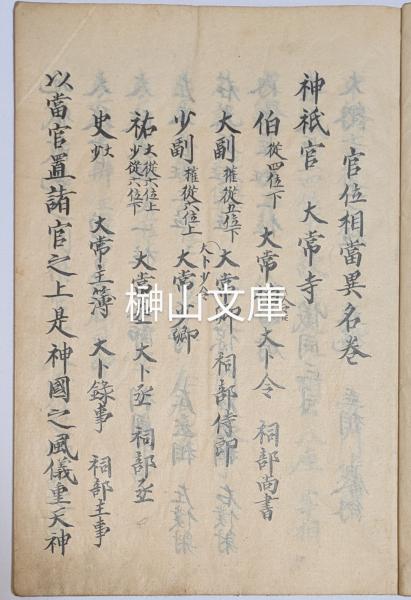 官位相當異名巻
神祇官 大常寺
伯 從四位下 大常 大卜令 祠部尚書
大副 權從五位下 大常 祠部侍郎
少副 權從六位上 大常少卿
大卜少令
祐 大從六位上 少從六位下 大常丞 大卜丞 祠部丞
史 大 少 大常主簿 大卜錄事 祠部主事
以當官置諸官之上是神國之風儀重天神
榊山文庫